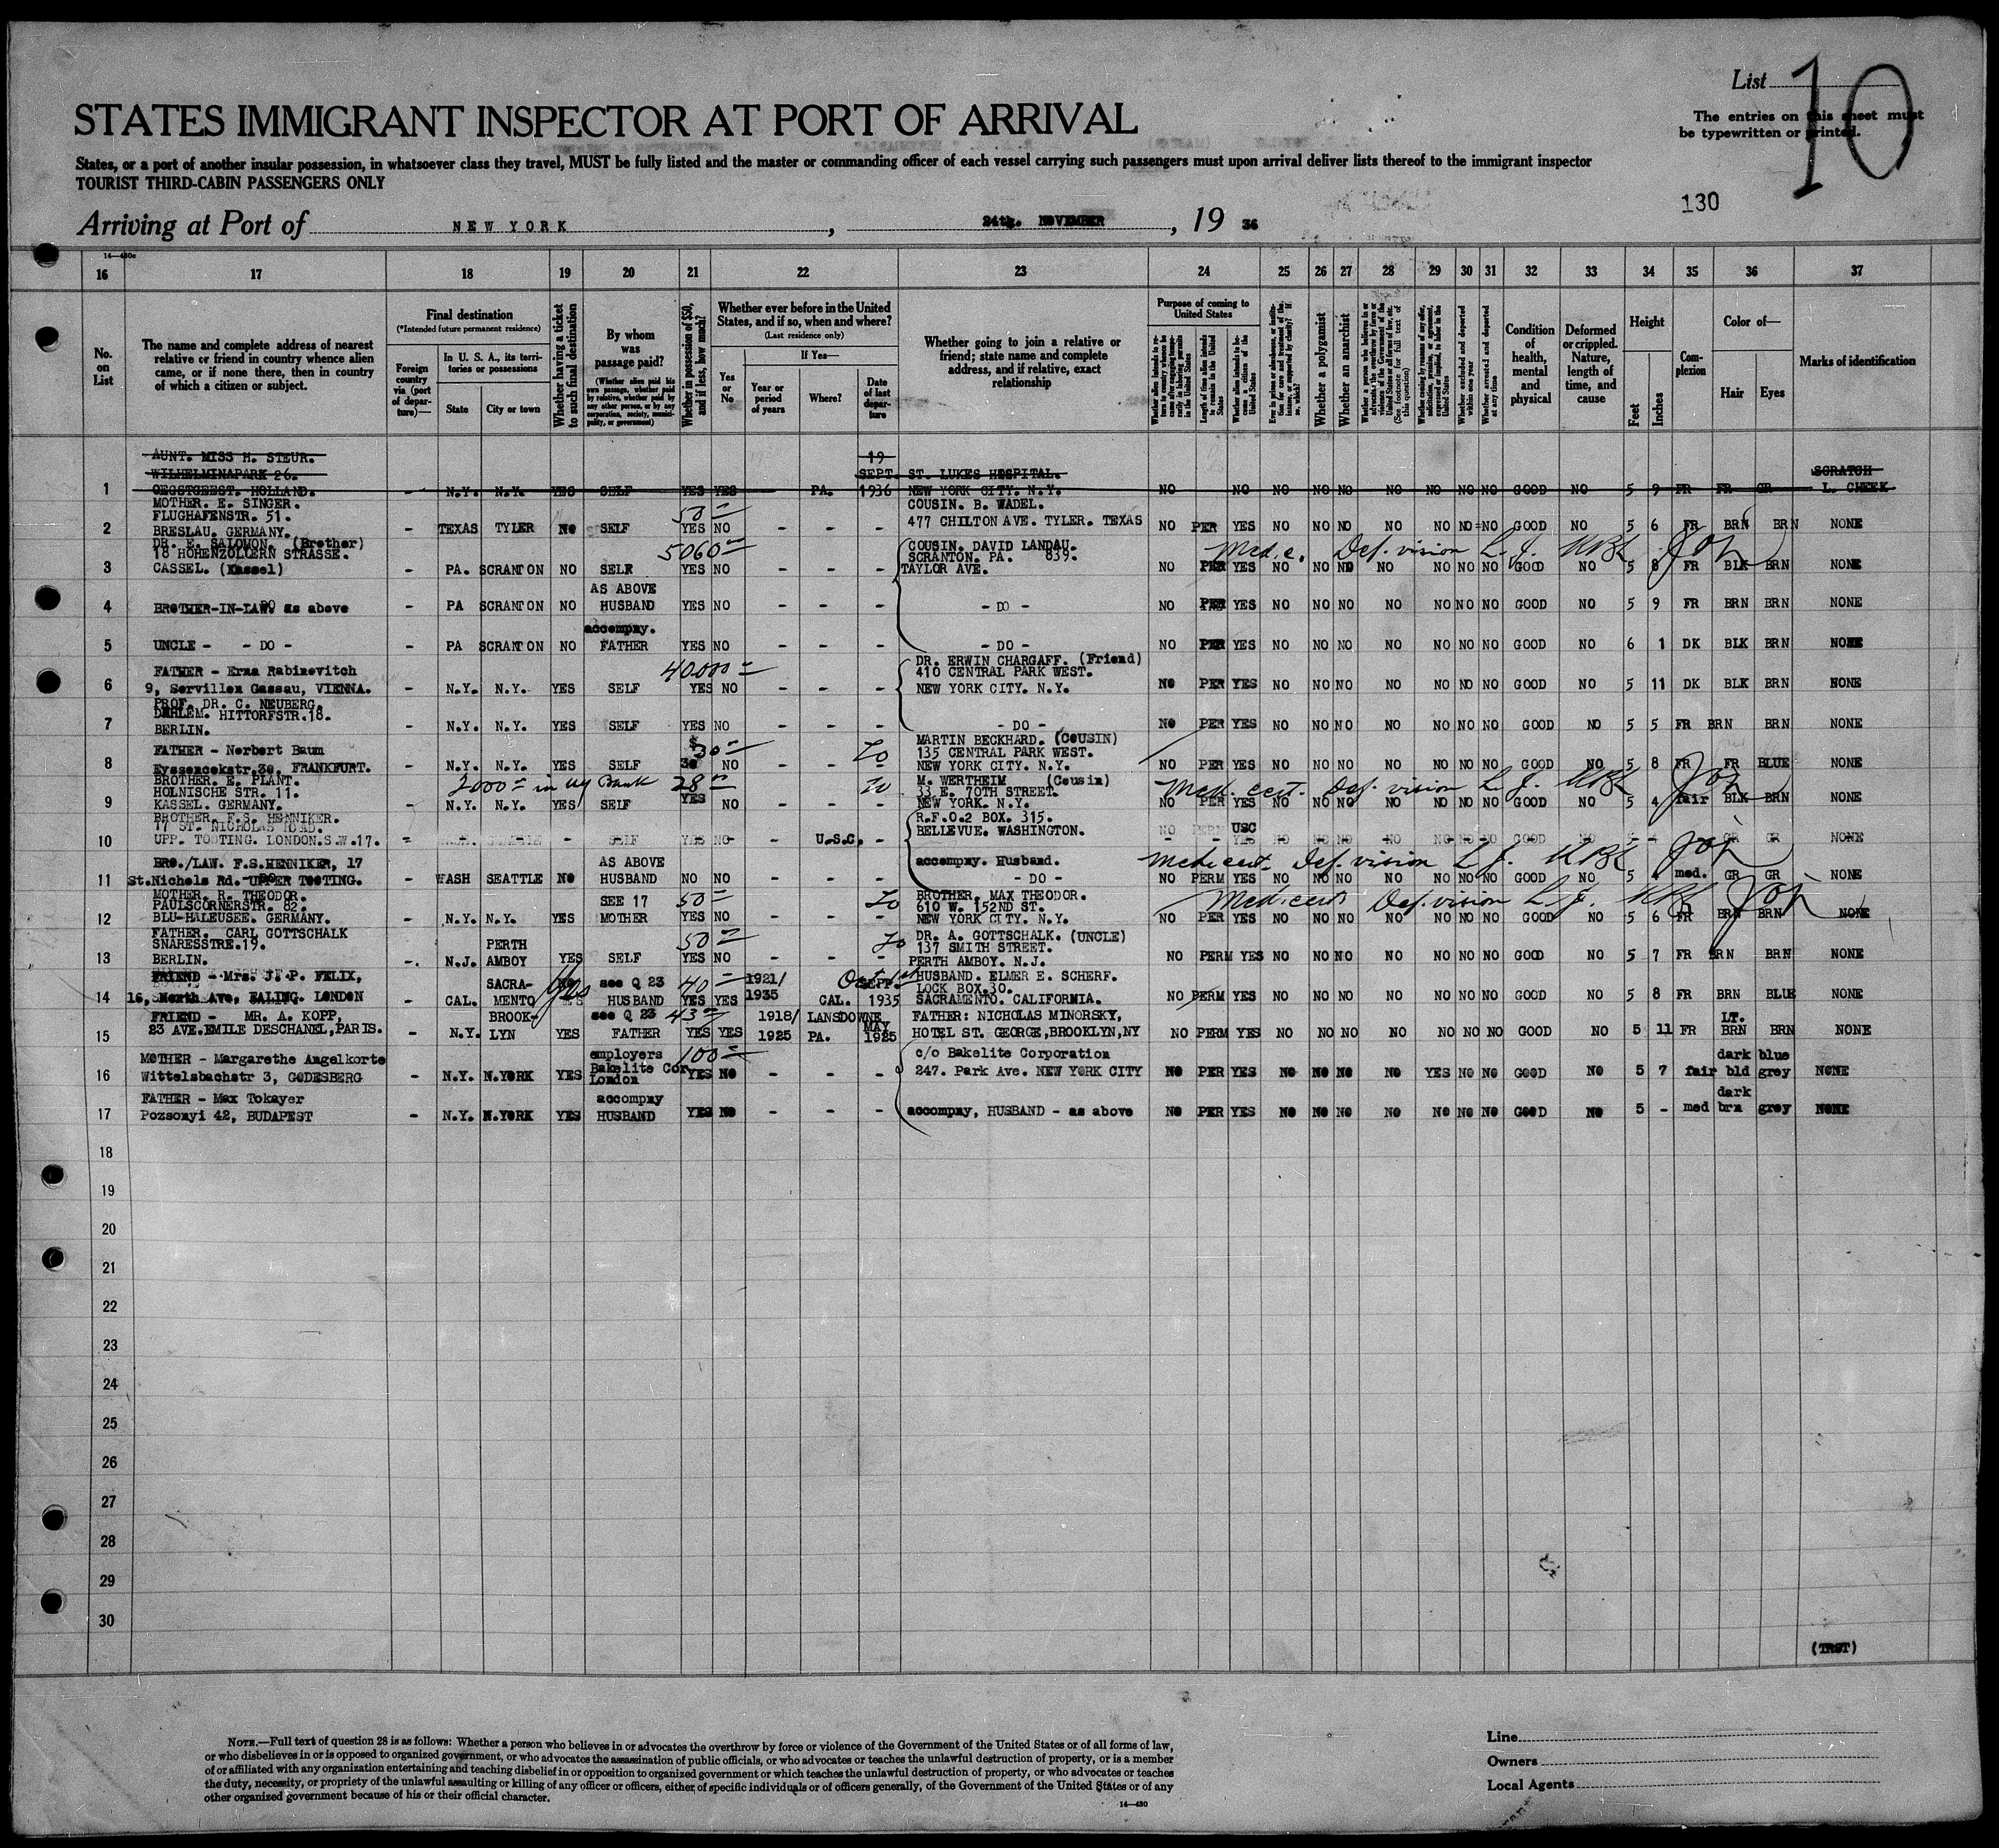 List 10
The entries on this sheet must
be typewritten or printed.
STATES IMMIGRANT INSPECTOR AT PORT OF ARRIVAL
States, or a port of another insular possession, in whatsoever class they travel, MUST be fully listed and the master or commanding officer of each vessel carrying such passengers must upon arrival deliver lists thereof to the immigrant inspector
TOURIST THIRD-CABIN PASSENGERS ONLY
130
Arriving at Port of NEW YORK, 24th. NOVEMBER, 19 36
16 17 18 19 20 21 22 23 24 25 26 27 28 29 30 31 32 33 34 35 36 37
No. on List
The name and complete address of nearest relative or friend in country whence alien came, or if none there, then in country of which a citizen or subject.
Final destination
(*Intended future permanent residence)
Foreign country via (port of departure)—
In U. S. A., its territories or possessions
State
City or town
Whether having a ticket to such final destination
By whom was passage paid?
(Whether alien paid his own passage, whether paid by relative, whether paid by any other person, or by any corporation, society, municipality, or government)
Whether in possession of $50, and if less, how much?
Whether ever before in the United States, and if so, when and where?
(Last residence only)
Yes or No
If Yes—
Year or period of years
Where?
Date of last departure
Whether going to join a relative or friend; state name and complete address, and if relative, exact relationship
Purpose of coming to United States
Length of time alien intends to remain in the United States
Whether alien intends to become a citizen of the United States
Whether a polygamist
Whether an anarchist
Whether excluded and deported within one year
Whether arrested and deported at any time
Condition of health, mental and physical
Deformed or crippled. Nature, length of time, and cause
Height
Feet
Inches
Complexion
Color of—
Hair
Eyes
Marks of identification
AUNT. MISS H. STEUR.
WILHELMINAPARK 26. 19 SEPT. ST. LUKES HOSPITAL. SCRATCH
1 OEGSTGEEST. HOLLAND. - N.Y. N.Y. YES SELF YES YES PA. 1936 NEW YORK CITY. N.Y. NO NO NO NO NO NO NO NO NO GOOD NO 5 9 FR FR GR L. CHEEK
MOTHER. E. SINGER. COUSIN. B. WADEL.
FLUGHAFENSTR. 51. 50
2 BRESLAU. GERMANY. - TEXAS TYLER NO SELF YES NO - - - 477 CHILTON AVE. TYLER. TEXAS NO PER YES NO NO NO NO NO NO NO GOOD NO 5 6 FR BRN BRN NONE
DR. E. SALOMON. (Brother) 5060 COUSIN. DAVID LANDAU.
18 HOHENZOLLERN STRASSE. SCRANTON. PA. 839. Def. vision
3 CASSEL. (Kassel) - PA. SCRANTON NO SELF YES NO - - - TAYLOR AVE. NO PER YES NO NO NO NO NO NO NO GOOD NO 5 8 FR BLK BRN NONE
AS ABOVE
4 BROTHER-IN-LAW. as above - PA SCRANTON NO HUSBAND YES NO - - - - DO - NO PER YES NO NO NO NO NO NO NO GOOD NO 5 9 FR BRN BRN NONE
accompny.
5 UNCLE - - DO - - PA SCRANTON NO FATHER YES NO - - - - DO - NO PER YES NO NO NO NO NO NO NO GOOD NO 6 1 DK BLK BRN NONE
FATHER - Erna Rabinovitch 40.000 DR. ERWIN CHARGAFF. (Friend)
410 CENTRAL PARK WEST.
6 9, Servillen Gassau, VIENNA. - N.Y. N.Y. YES SELF YES NO - - - NEW YORK CITY. N.Y. NO PER YES NO NO NO NO NO NO NO GOOD NO 5 11 DK BLK BRN NONE
PROF. DR. C. NEUBERG.
DAHLEM. HITTORFSTR.18.
7 BERLIN. - N.Y. N.Y. YES SELF YES NO - - - - DO - NO PER YES NO NO NO NO NO NO NO GOOD NO 5 5 FR BRN BRN NONE
FATHER - Norbert Baum $30 MARTIN BECKHARD. (COUSIN)
135 CENTRAL PARK WEST.
8 Eysseneckstr.30, FRANKFURT. - N.Y. N.Y. YES SELF 30 NO - - NEW YORK CITY. N.Y. NO PER YES NO NO NO NO NO NO NO GOOD NO 5 8 FR FR BLUE NONE
BROTHER. E. PLANT. 2000 in NY Bank 28 M. WERTHEIM (Cousin)
HOLNISCHE STR. 11. 33 E. 70TH STREET. Med. cert. Def. vision
9 KASSEL. GERMANY. - N.Y. N.Y. YES SELF YES NO - - - NEW YORK. N.Y. NO PER YES NO NO NO NO NO NO NO GOOD NO 5 4 fair BLK BRN NONE
BROTHER. F.S. HENNIKER. R.F.O.2 BOX. 315.
17 ST. NICHOLAS ROAD. BELLEVUE. WASHINGTON. USC
10 UPP. TOOTING. LONDON.S.W.17. - SELF YES NO - U.S.C. - NO PERM YES NO NO NO NO NO NO NO GOOD NO GR GR NONE
BRO./LAW. F.S.HENNIKER, 17 AS ABOVE accompny. Husband. Def. vision
11 St.Nichols Rd. UPPER TOOTING. - WASH SEATTLE NO HUSBAND NO NO - - - - DO - NO PERM YES NO NO NO NO NO NO NO GOOD NO 5 4 med. GR GR NONE
MOTHER. R. THEODOR. SEE 17 50 BROTHER. MAX THEODOR.
PAULSCORNERSTR. 82. 610 W. 152ND ST. Def. vision
12 BLU-HALEUSEE. GERMANY. - N.Y. N.Y. YES MOTHER YES NO - - - NEW YORK CITY. N.Y. NO PER YES NO NO NO NO NO NO NO GOOD NO 5 6 FR BRN BRN NONE
FATHER. CARL GOTTSCHALK DR. A. GOTTSCHALK. (UNCLE)
SNARESSTRE.19. PERTH 50 137 SMITH STREET.
13 BERLIN. -. N.J. AMBOY YES SELF YES NO - - - PERTH AMBOY. N.J. NO PERM YES NO NO NO NO NO NO NO GOOD NO 5 7 FR BRN BRN NONE
FRIEND - Mrs. J. P. FELIX, SACRA- see Q 23 40 1921/ Oct. 1st HUSBAND. ELMER E. SCHERF.
LOCK BOX.30.
14 16, North Ave, EALING. LONDON - CAL. MENTO yes HUSBAND YES YES 1935 CAL. 1935 SACRAMENTO. CALIFORNIA. NO PERM YES NO NO NO NO NO NO NO GOOD NO 5 8 FR BRN BLUE NONE
FRIEND - MR. A. KOPP, BROOK- see Q 23 43 1918/ LANSDOWNE FATHER: NICHOLAS MINORSKY, LT.
15 23 AVE.EMILE DESCHANEL,PARIS. N.Y. LYN YES FATHER YES YES 1925 PA. MAY 1925 HOTEL ST. GEORGE,BROOKLYN,NY NO PERM YES NO NO NO NO NO NO NO GOOD NO 5 11 FR BRN BRN NONE
MOTHER - Margarethe Angelkorte employers 100 c/o Bakelite Corporation dark blue
16 Wittelsbachstr 3, GODESBERG - N.Y. N.YORK YES Bakelite Cor London YES NO - - - 247. Park Ave. NEW YORK CITY NO PER YES NO NO NO NO YES NO NO GOOD NO 5 7 fair bld grey NONE
FATHER - Max Tokayer accompny dark
17 Pozsonyi 42, BUDAPEST - N.Y. N.YORK YES HUSBAND YES NO - - - accompny, HUSBAND - as above NO PER YES NO NO NO NO NO NO NO GOOD NO 5 - med brn grey NONE
18
19
20
21
22
23
24
25
26
27
28
29
30
(TRST)
NOTE.—Full text of question 28 is as follows: Whether a person who believes in or advocates the overthrow by force or violence of the Government of the United States or of all forms of law,
or who disbelieves in or is opposed to organized government, or who advocates the assassination of public officials, or who advocates or teaches the unlawful destruction of property, or is a member
of or affiliated with any organization entertaining and teaching disbelief in or opposition to organized government or which teaches the unlawful destruction of property, or who advocates or teaches
the duty, necessity, or propriety of the unlawful assaulting or killing of any officer or officers, either of specific individuals or of officers generally, of the Government of the United States or of any
other organized government because of his or their official character.
14—430
Line
Owners
Local Agents